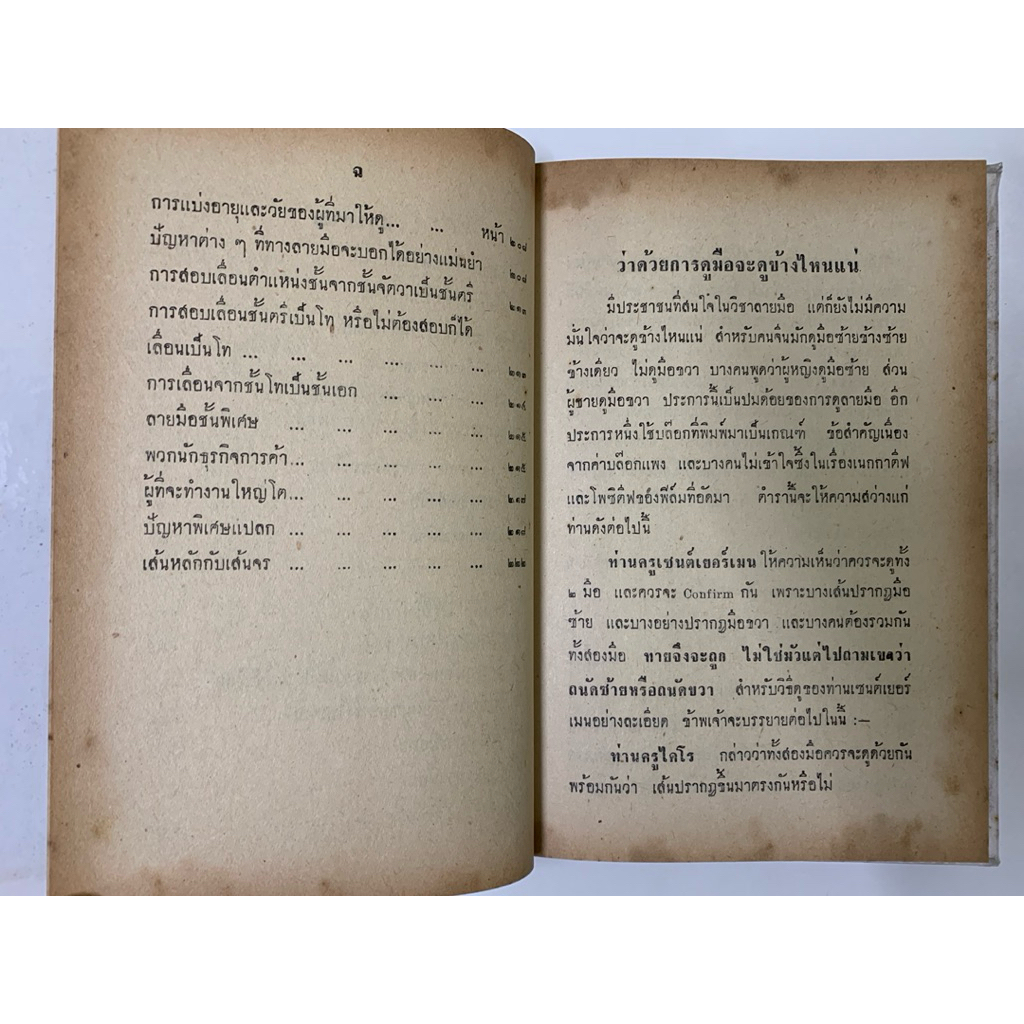 ฉ
การแบ่งอายุและวัยของผู้ที่มาให้ดู... ... หน้า ๒๐๘
ปัญหาต่าง ๆ ที่ทางลายมือจะบอกได้อย่างแม่นยำ ๒๐๘
การสอบเลื่อนตำแหน่งชั้นจากชั้นจัตวาเป็นชั้นตรี ๒๑๓
การสอบเลื่อนชั้นตรีเป็นโท หรือไม่ต้องสอบก็ได้
เลื่อนเป็นโท ... ... ... ... ... ๒๑๓
การเลื่อนจากชั้นโทเป็นชั้นเอก ... ... ... ๒๑๔
ลายมือชั้นพิเศษ ... ... ... ... ... ๒๑๕
พวกนักธุรกิจการค้า... ... ... ... ... ๒๑๕
ผู้ที่จะทำงานใหญ่โต... ... ... ... ... ๒๑๗
ปัญหาพิเศษแปลก ... ... ... ... ... ๒๑๘
เส้นหลักกับเส้นจร ... ... ... ... ... ๒๒๒
ว่าด้วยการดูมือจะดูข้างไหนแน่
มีประชาชนที่สนใจในวิชาลายมือ แต่ก็ยังไม่มีความ
มั่นใจว่าจะดูข้างไหนแน่ สำหรับคนจีนมักดูมือซ้ายข้างซ้าย
ข้างเดียว ไม่ดูมือขวา บางคนพูดว่าผู้หญิงดูมือซ้าย ส่วน
ผู้ชายดูมือขวา ประการนี้เป็นปมด้อยของการดูลายมือ อีก
ประการหนึ่งใช้บล๊อกที่พิมพ์มาเป็นเกณฑ์ ข้อสำคัญเนื่อง
จากค่าบล๊อกแพง และบางคนไม่เข้าใจซึ้งในเรื่องเนกกาตี๊ฟ
และโพซิตี๊ฟของฟิล์มที่อัดมา ตำรานี้จะให้ความสว่างแก่
ท่านดังต่อไปนี้
ท่านครูเซนต์เยอร์เมน ให้ความเห็นว่าควรจะดูทั้ง
๒ มือ และควรจะ Confirm กัน เพราะบางเส้นปรากฏมือ
ซ้าย และบางอย่างปรากฏมือขวา และบางคนต้องรวมกัน
ทั้งสองมือ ทายจึงจะถูก ไม่ใช่มัวแต่ไปถามเขาว่า
ถนัดซ้ายหรือถนัดขวา สำหรับวิธีดูของท่านเซนต์เยอร์
เมนอย่างละเอียด ข้าพเจ้าจะบรรยายต่อไปในนี้ :—
ท่านครูไคโร กล่าวว่าทั้งสองมือควรจะดูด้วยกัน
พร้อมกันว่า เส้นปรากฏขึ้นมาตรงกันหรือไม่